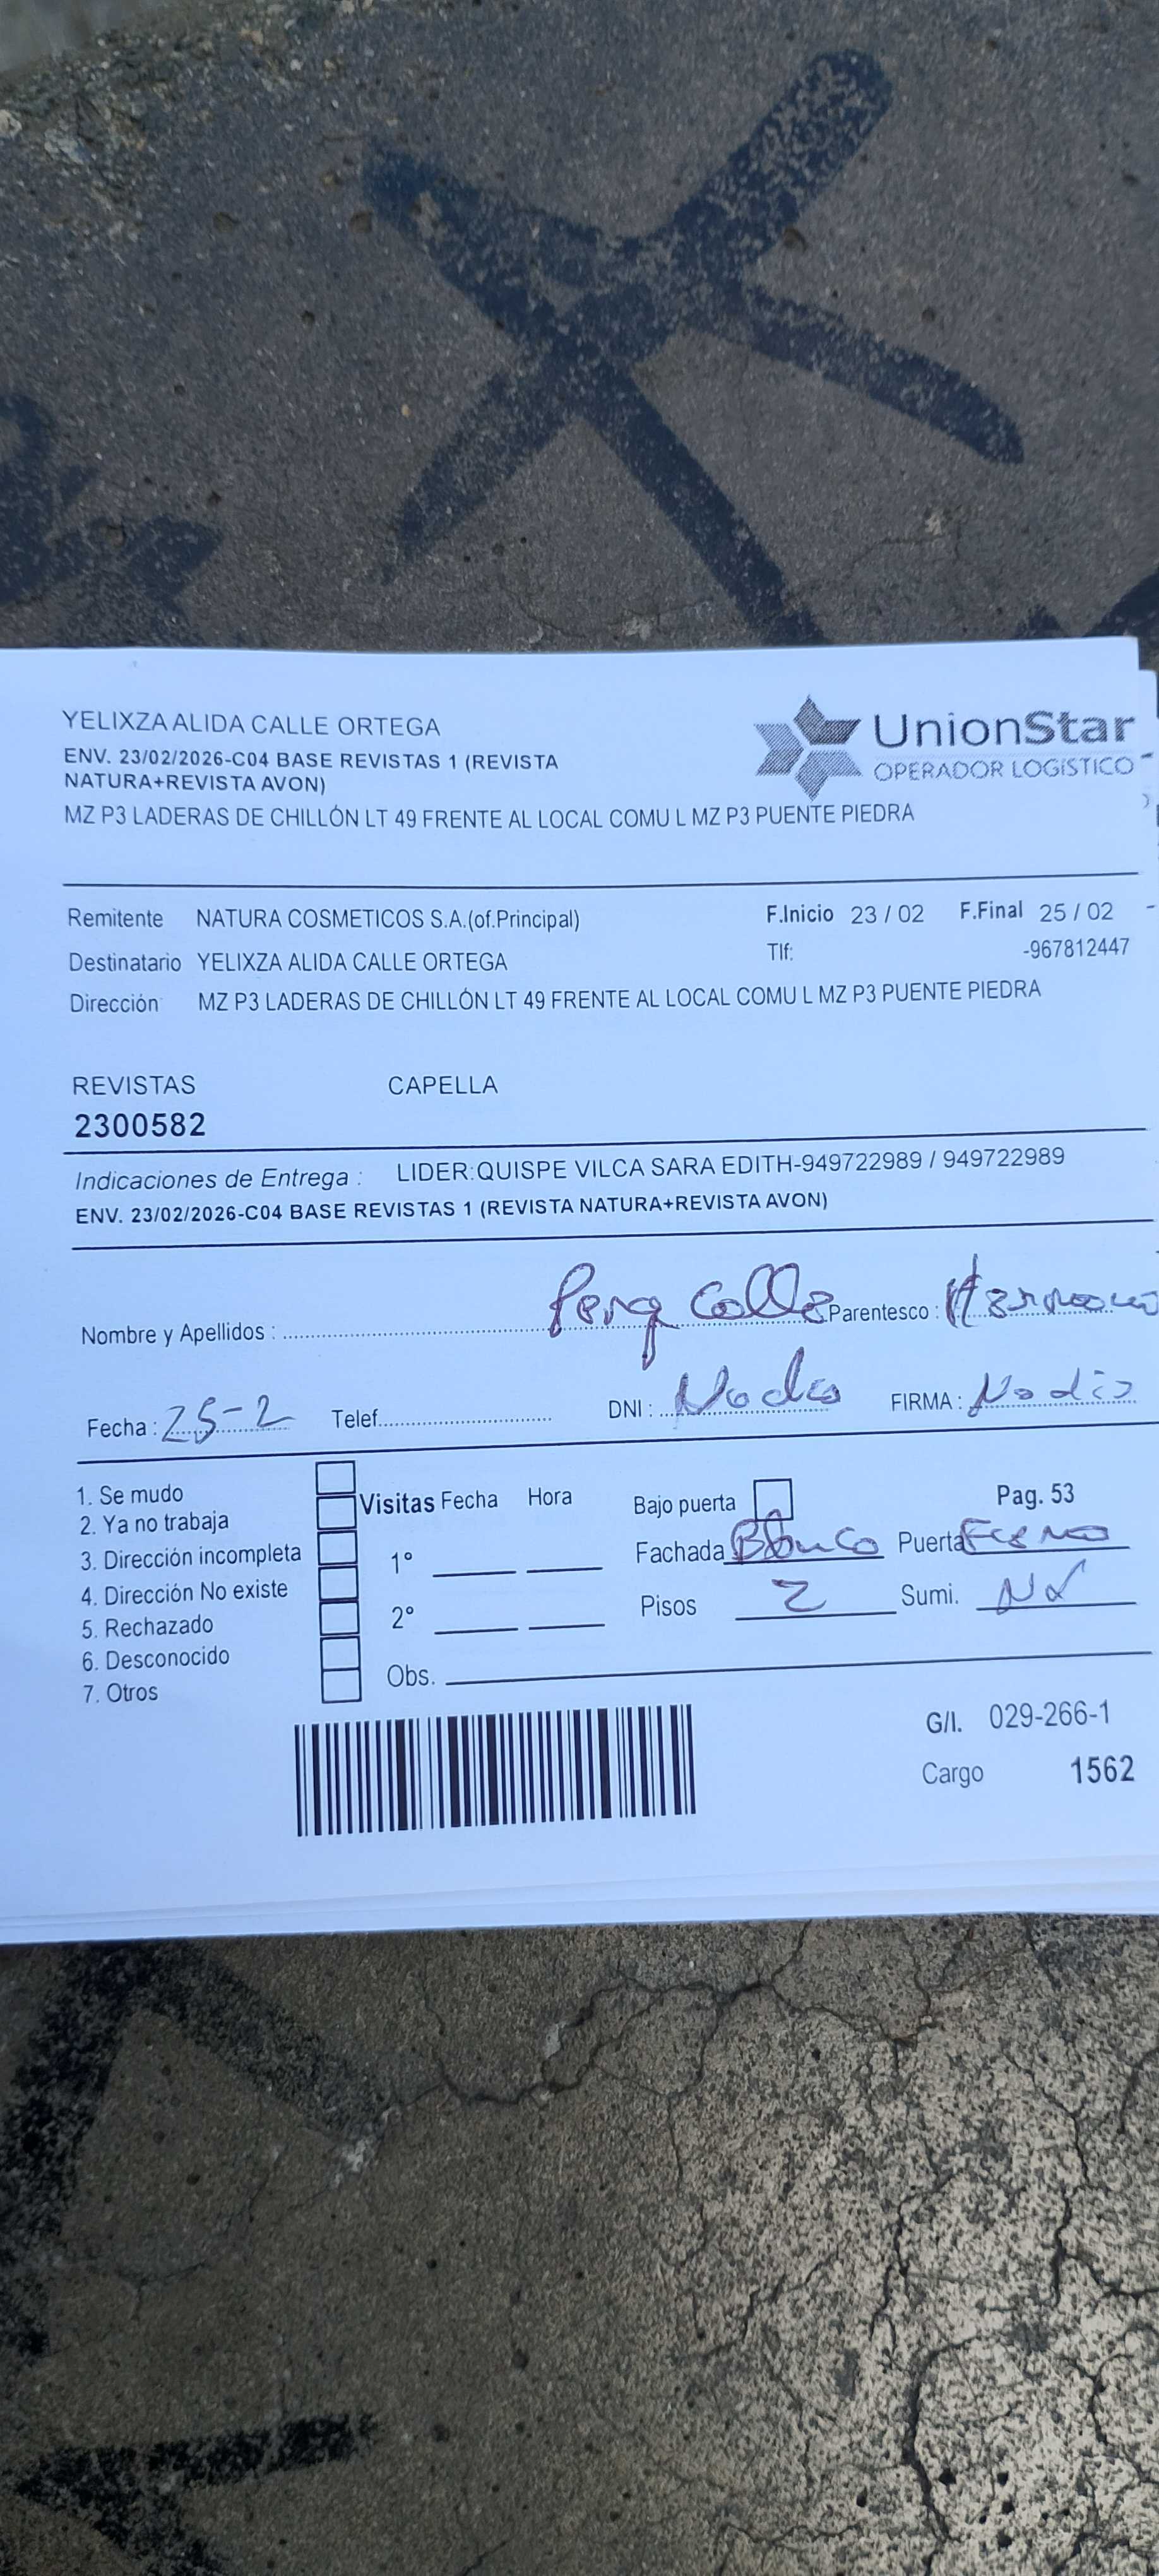 YELIXZA ALIDA CALLE ORTEGA
ENV. 23/02/2026-C04 BASE REVISTAS 1 (REVISTA
NATURA+REVISTA AVON)
MZ P3 LADERAS DE CHILLÓN LT 49 FRENTE AL LOCAL COMU L MZ P3 PUENTE PIEDRA
UnionStar
OPERADOR LOGÍSTICO
Remitente NATURA COSMETICOS S.A.(of.Principal) F.Inicio 23 / 02 F.Final 25 / 02
Destinatario YELIXZA ALIDA CALLE ORTEGA Tlf: -967812447
Dirección MZ P3 LADERAS DE CHILLÓN LT 49 FRENTE AL LOCAL COMU L MZ P3 PUENTE PIEDRA
REVISTAS CAPELLA
2300582
Indicaciones de Entrega : LIDER:QUISPE VILCA SARA EDITH-949722989 / 949722989
ENV. 23/02/2026-C04 BASE REVISTAS 1 (REVISTA NATURA+REVISTA AVON)
Nombre y Apellidos : Calle Parentesco :
Fecha : 25-2 Telef. DNI : FIRMA :
1. Se mudo
2. Ya no trabaja
3. Dirección incompleta
4. Dirección No existe
5. Rechazado
6. Desconocido
7. Otros
Visitas Fecha Hora
1°
2°
Obs.
Bajo puerta Pag. 53
Fachada Blanco Puerta Fierro
Pisos 2 Sumi.
G/I. 029-266-1
Cargo 1562